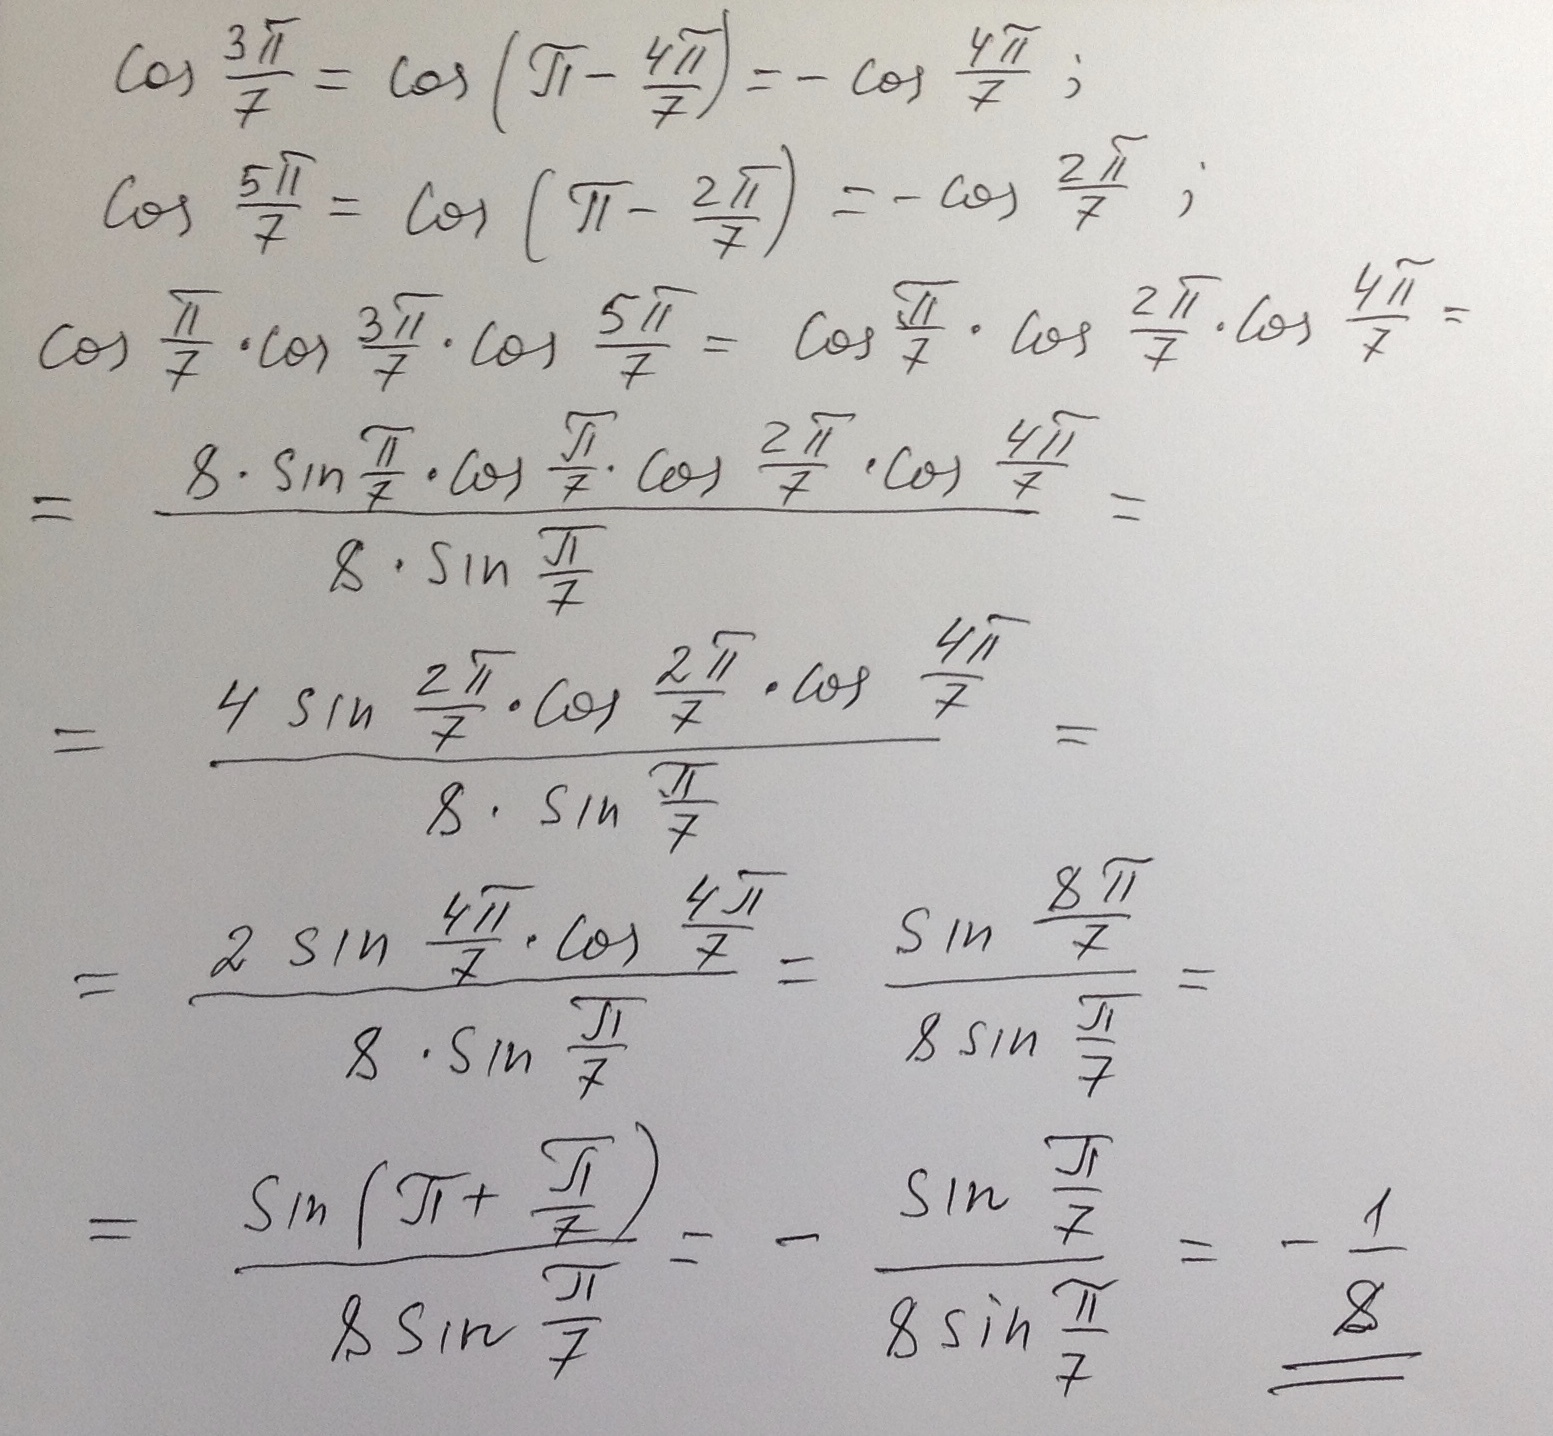 cos 3π/7 = cos (π − 4π/7) = − cos 4π/7 ;
cos 5π/7 = cos (π − 2π/7) = − cos 2π/7 ;
cos π/7 · cos 3π/7 · cos 5π/7 = cos π/7 · cos 2π/7 · cos 4π/7 =
= (8 · sin π/7 · cos π/7 · cos 2π/7 · cos 4π/7) / (8 · sin π/7) =
= (4 sin 2π/7 · cos 2π/7 · cos 4π/7) / (8 · sin π/7) =
= (2 sin 4π/7 · cos 4π/7) / (8 · sin π/7) = (sin 8π/7) / (8 sin π/7) =
= (sin (π + π/7)) / (8 sin π/7) = − (sin π/7) / (8 sin π/7) = − 1/8